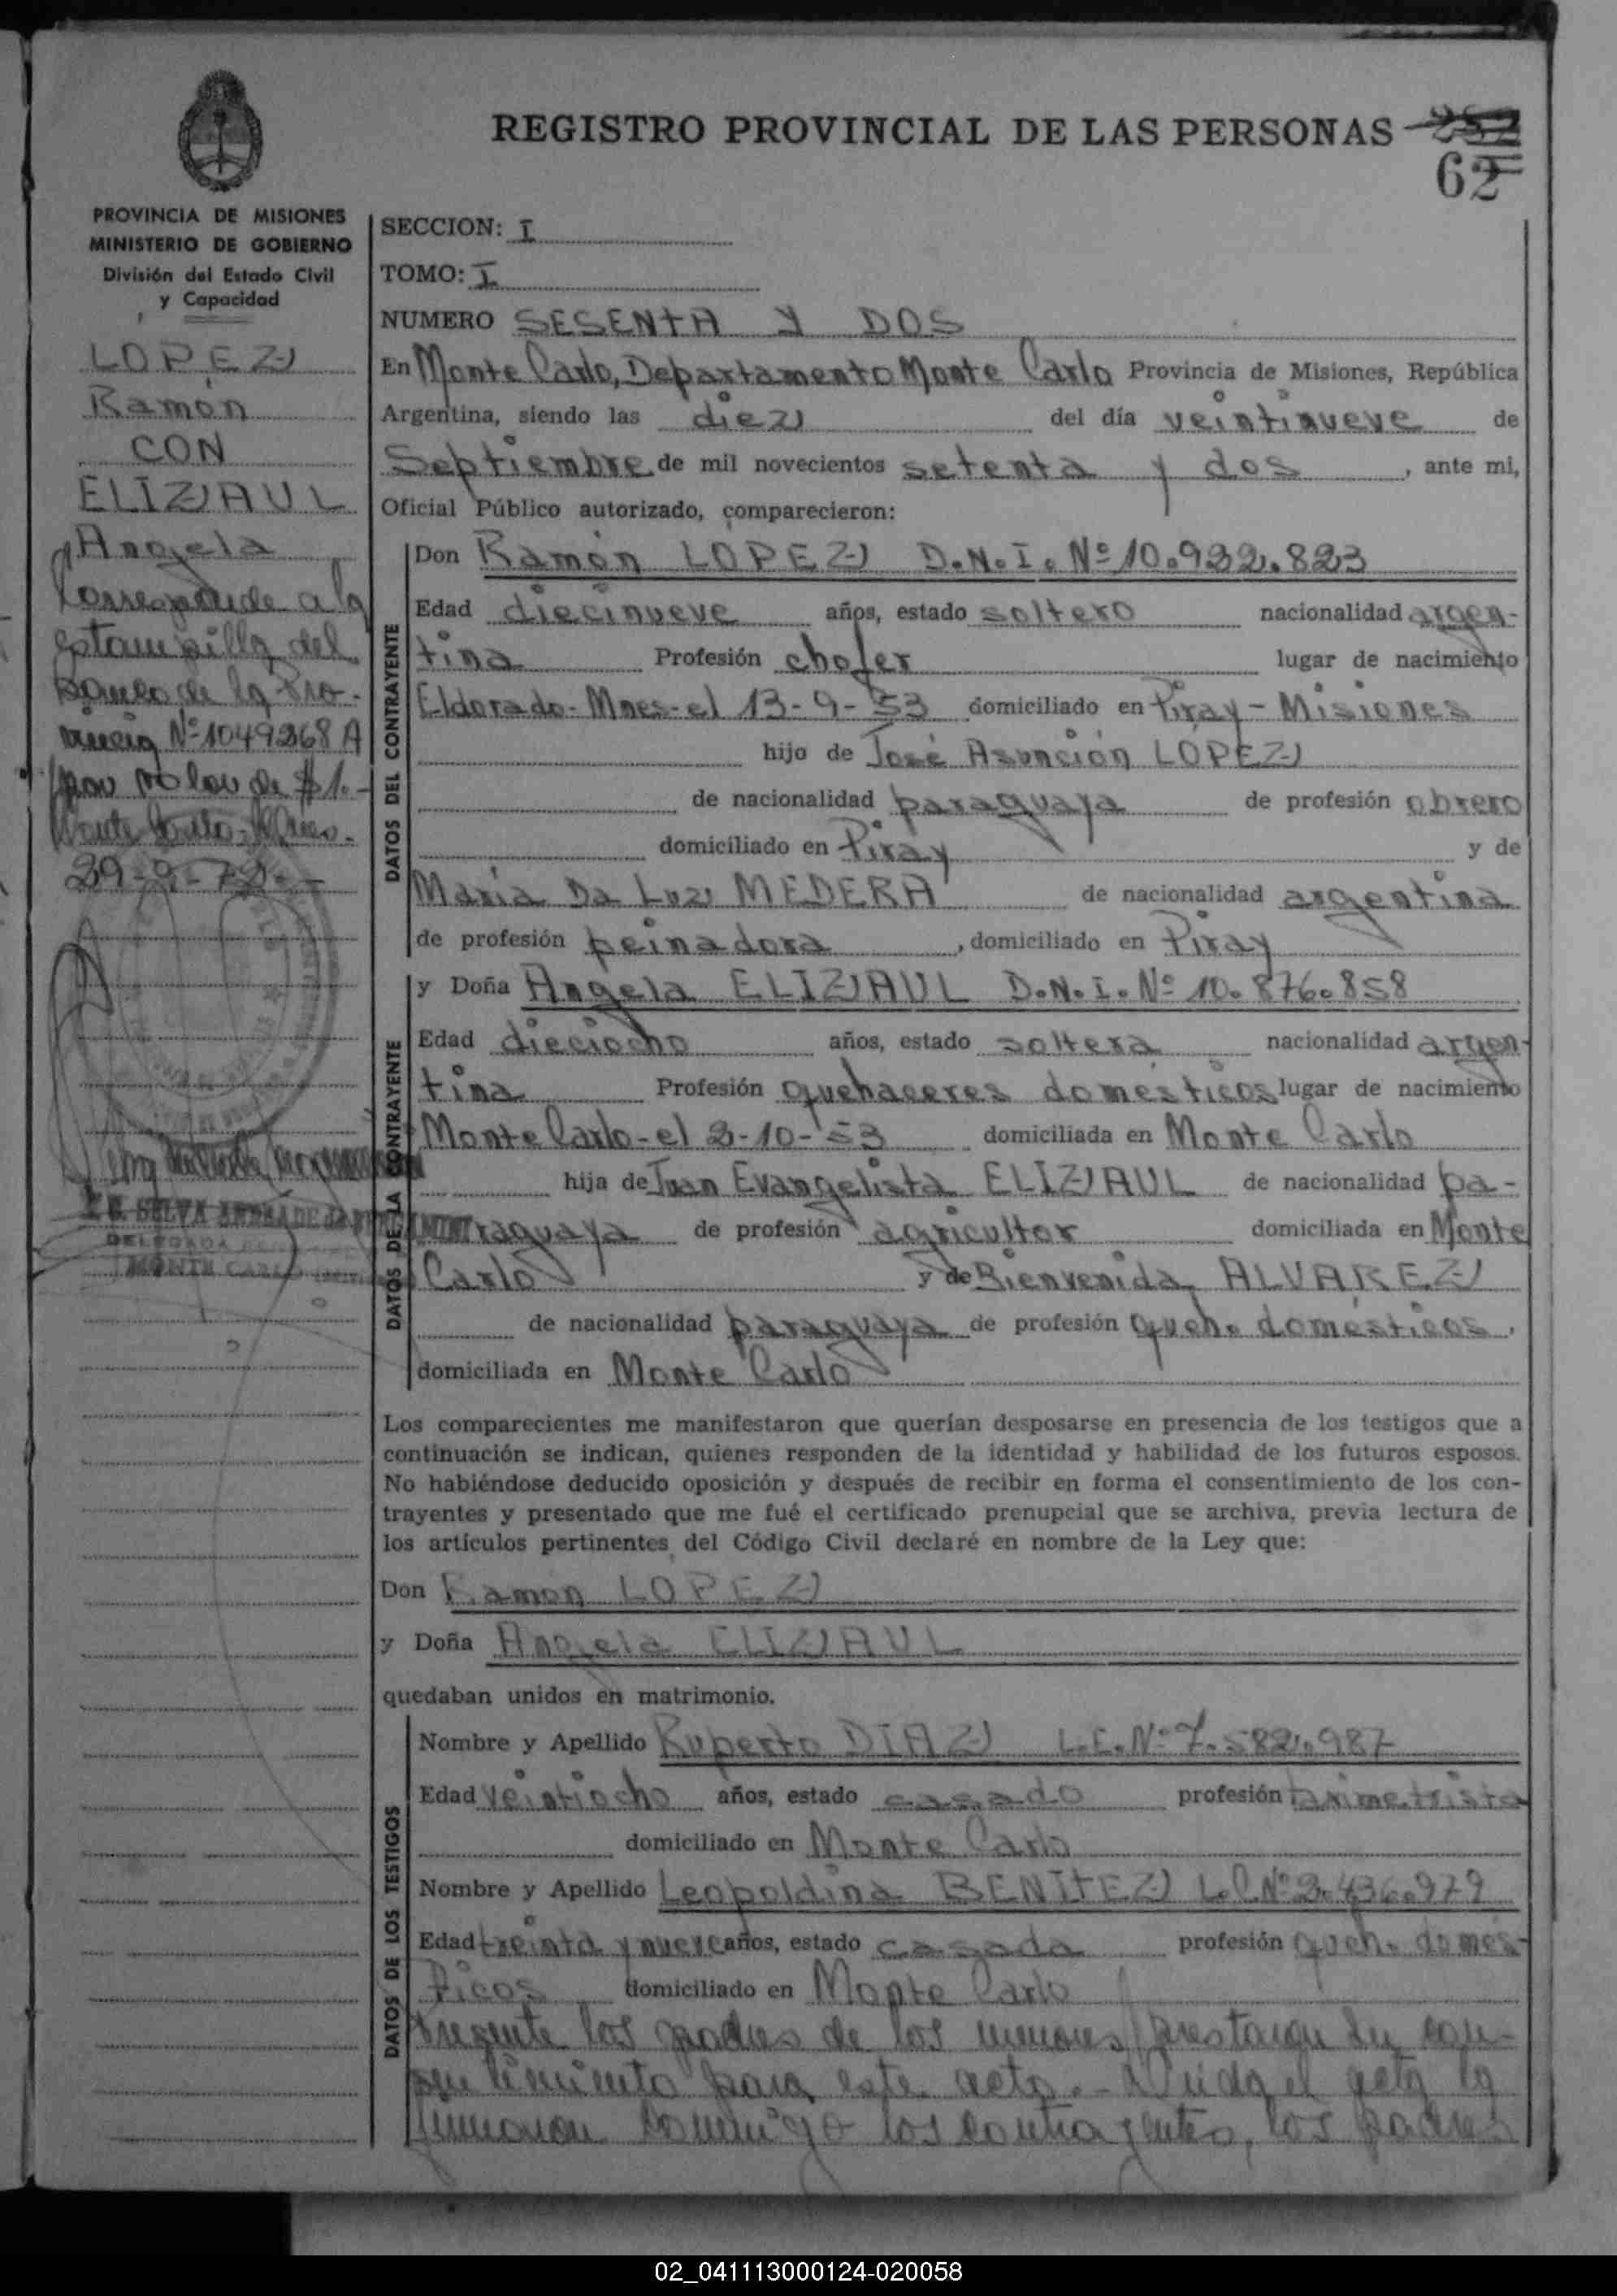 REGISTRO PROVINCIAL DE LAS PERSONAS
62
PROVINCIA DE MISIONES
MINISTERIO DE GOBIERNO
División del Estado Civil
y Capacidad
LOPEZ
Ramón
CON
ELIZAUL
Angela
Corresponde a la
estampilla del
Banco de la Pro-
vincia Nº 1049268 A
por valor de $1.-
Monte Carlo-Mnes.
29-9-72.-
SELVA ANDRADE DE
DELEGADA
MONTE CARLO
SECCION: I
TOMO: I
NUMERO SESENTA Y DOS
En Monte Carlo, Departamento Monte Carlo Provincia de Misiones, República
Argentina, siendo las diez del día veintinueve de
Septiembre de mil novecientos setenta y dos, ante mi,
Oficial Público autorizado, comparecieron:
DATOS DEL CONTRAYENTE
Don Ramón LOPEZ D.N.I. Nº 10.932.823
Edad diecinueve años, estado soltero nacionalidad argen-
tina Profesión chofer lugar de nacimiento
Eldorado-Mnes-el 13-9-53 domiciliado en Piray-Misiones
hijo de José Asunción LOPEZ
de nacionalidad paraguaya de profesión obrero
domiciliado en Piray y de
María Da Luz MEDERA de nacionalidad argentina
de profesión peinadora, domiciliado en Piray
DATOS DE LA CONTRAYENTE
y Doña Angela ELIZAUL D.N.I. Nº 10.876.858
Edad dieciocho años, estado soltera nacionalidad argen-
tina Profesión quehaceres domésticos lugar de nacimiento
Monte Carlo-el 2-10-53 domiciliada en Monte Carlo
hija de Juan Evangelista ELIZAUL de nacionalidad pa-
raguaya de profesión agricultor domiciliada en Monte
Carlo y de Bienvenida ALVAREZ
de nacionalidad paraguaya de profesión queh. domésticos,
domiciliada en Monte Carlo
Los comparecientes me manifestaron que querían desposarse en presencia de los testigos que a
continuación se indican, quienes responden de la identidad y habilidad de los futuros esposos.
No habiéndose deducido oposición y después de recibir en forma el consentimiento de los con-
trayentes y presentado que me fué el certificado prenupcial que se archiva, previa lectura de
los artículos pertinentes del Código Civil declaré en nombre de la Ley que:
Don Ramon LOPEZ
y Doña Angela ELIZAUL
quedaban unidos en matrimonio.
DATOS DE LOS TESTIGOS
Nombre y Apellido Ruperto DIAZ L.E.Nº 7.582.987
Edad veintiocho años, estado casado profesión taximetrista
domiciliado en Monte Carlo
Nombre y Apellido Leopoldina BENITEZ L.C.Nº 2.436.979
Edad treinta y nueve años, estado casada profesión queh. domés-
ticos domiciliado en Monte Carlo
Presente los padres de los menores prestaron su con-
sentimiento para este acto.- Leida el acta la
firmaron conmigo los contrayentes, los padres
02_041113000124-020058